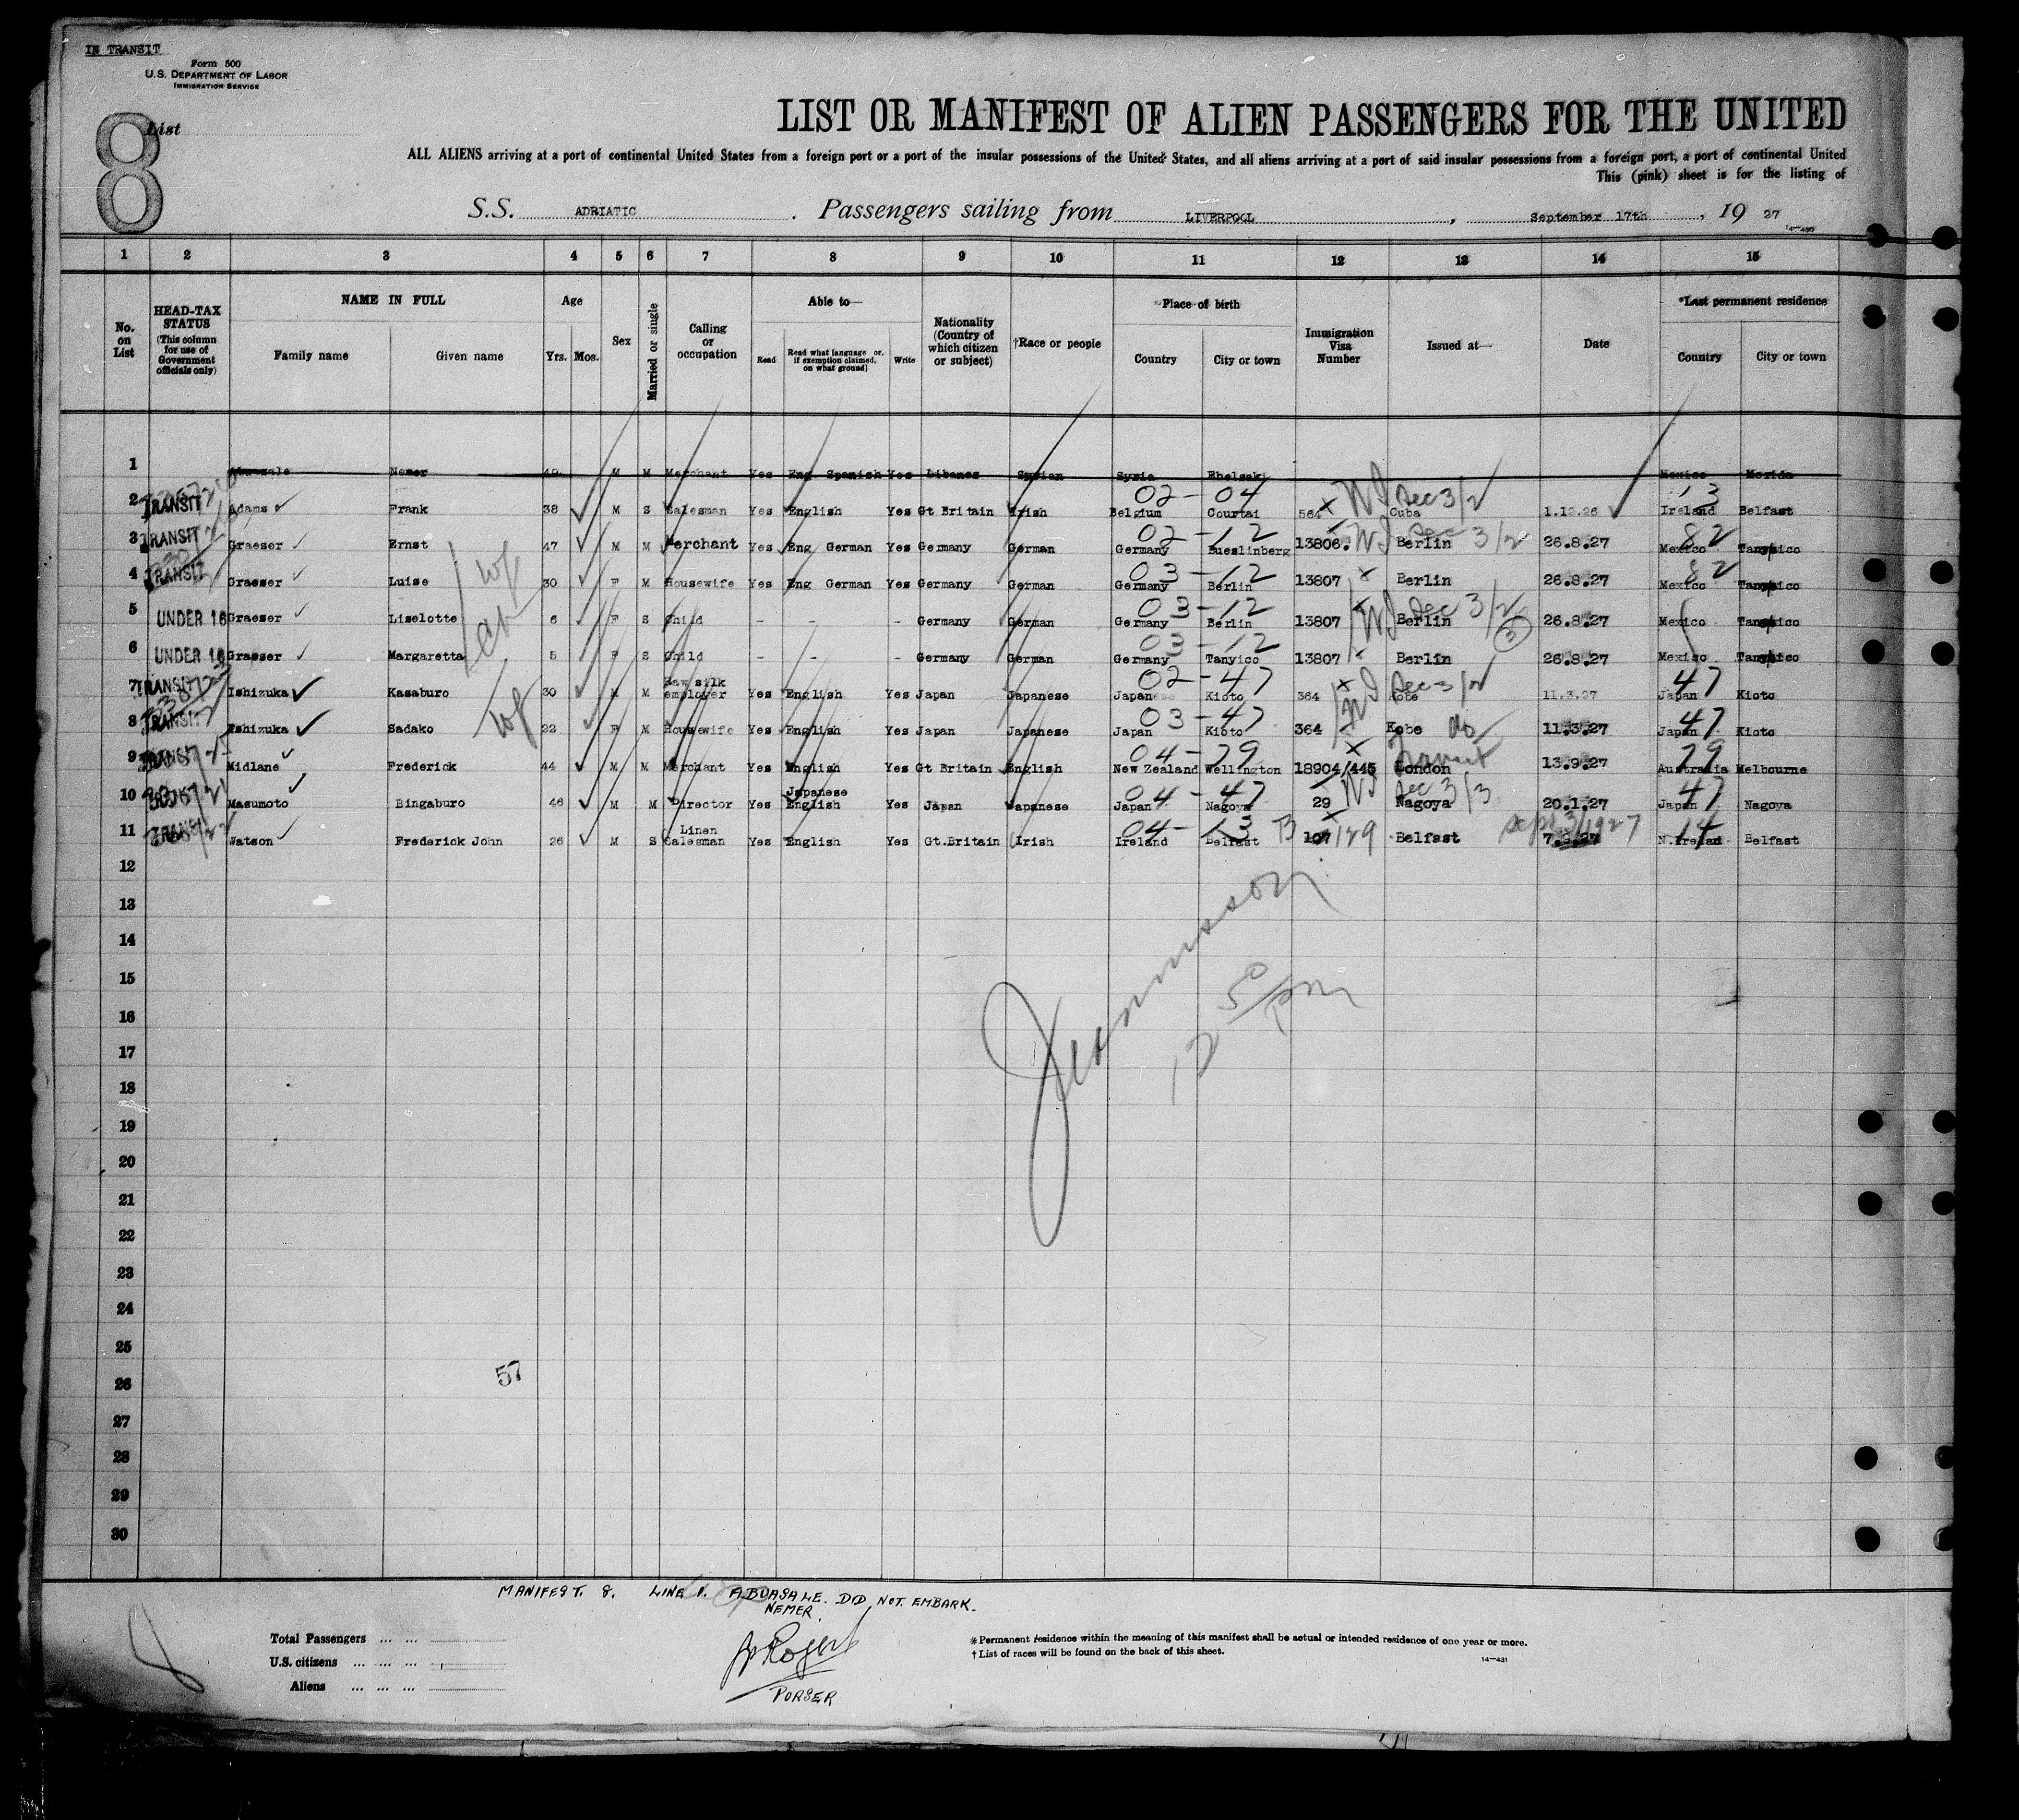 IN TRANSIT
Form 500
U.S. DEPARTMENT OF LABOR
IMMIGRATION SERVICE
8
List
LIST OR MANIFEST OF ALIEN PASSENGERS FOR THE UNITED
ALL ALIENS arriving at a port of continental United States from a foreign port or a port of the insular possessions of the United States, and all aliens arriving at a port of said insular possessions from a foreign port, a port of continental United
This (pink) sheet is for the listing of
S.S. ADRIATIC. Passengers sailing from LIVERPOOL, September 17th, 19 27
14—430
1 2 3 4 5 6 7 8 9 10 11 12 13 14 15
No. on List
HEAD-TAX STATUS (This column for use of Government officials only)
NAME IN FULL
Family name Given name
Age
Yrs. Mos.
Sex
Married or single
Calling or occupation
Able to—
Read Read what language or, if exemption claimed, on what ground) Write
Nationality (Country of which citizen or subject)
†Race or people
Place of birth
Country City or town
Immigration Visa Number
Issued at—
Date
*Last permanent residence
Country City or town
1 Nemer 49 M M Merchant Yes Eng Spanish Yes Libanes Syrian Syria Mexico Merida
02-04 Sec 3/2 13
2 TRANSIT Adams Frank 38 M S Salesman Yes English Yes Gt Britain Irish Belgium Courtai 564 Cuba 1.12.26 Ireland Belfast
02-12 3/2 82
3 TRANSIT Graeser Ernst 47 M M Merchant Yes Eng German Yes Germany German Germany Bueslinberg 13806. Berlin 26.8.27 Mexico
03-12 82
4 TRANSIT Graeser Luise 30 F M Housewife Yes Eng German Yes Germany German Germany Berlin 13807 Berlin 26.8.27 Mexico
03-12 Sec 3/2
5 UNDER 16 Graeser Liselotte 6 F S Child - - - Germany German Germany Berlin 13807 Berlin 26.8.27 Mexico
03-12 3
6 UNDER 16 Graeser Margaretta 5 F S Child - - - Germany German Germany Tanyico 13807 Berlin 26.8.27 Mexico
02-47 Sec 3/2 47
7 TRANSIT Ishizuka Kasaburo 30 M M Raw silk employer Yes English Yes Japan Japanese Japan Kioto 364 Kobe 11.3.27 Japan Kioto
03-47 do 47
8 TRANSIT Ishizuka Sadako 22 F M Housewife Yes English Yes Japan Japanese Japan Kioto 364 Kobe 11.3.27 Japan Kioto
04-79 Transit 79
9 TRANSIT Midlane Frederick 44 M M Merchant Yes English Yes Gt Britain English New Zealand Wellington 18904/445 London 13.9.27 Australia Melbourne
04-47 Sec 3/3 47
10 Masumoto Bingaburo 46 M M Director Yes Japanese English Yes Japan Japanese Japan Nagoya 29 Nagoya 20.1.27 Japan Nagoya
04-13 129 Sept 3/1927 14
11 Watson Frederick John 26 M S Linen Salesman Yes English Yes Gt.Britain Irish Ireland Belfast 107 Belfast 7.9.27 N.Irelan Belfast
12
13
14
15
16
17
18
19
20
21
22
23
24
25
26
27
28
29
30
12 50 pm
57
MANIFEST. 8. LINE 1. ABUASALE. DID NOT EMBARK.
NEMER.
PURSER
Total Passengers ... ...
U.S. citizens ... ... ...
Aliens ... ... ...
* Permanent residence within the meaning of this manifest shall be actual or intended residence of one year or more.
† List of races will be found on the back of this sheet.
14—431